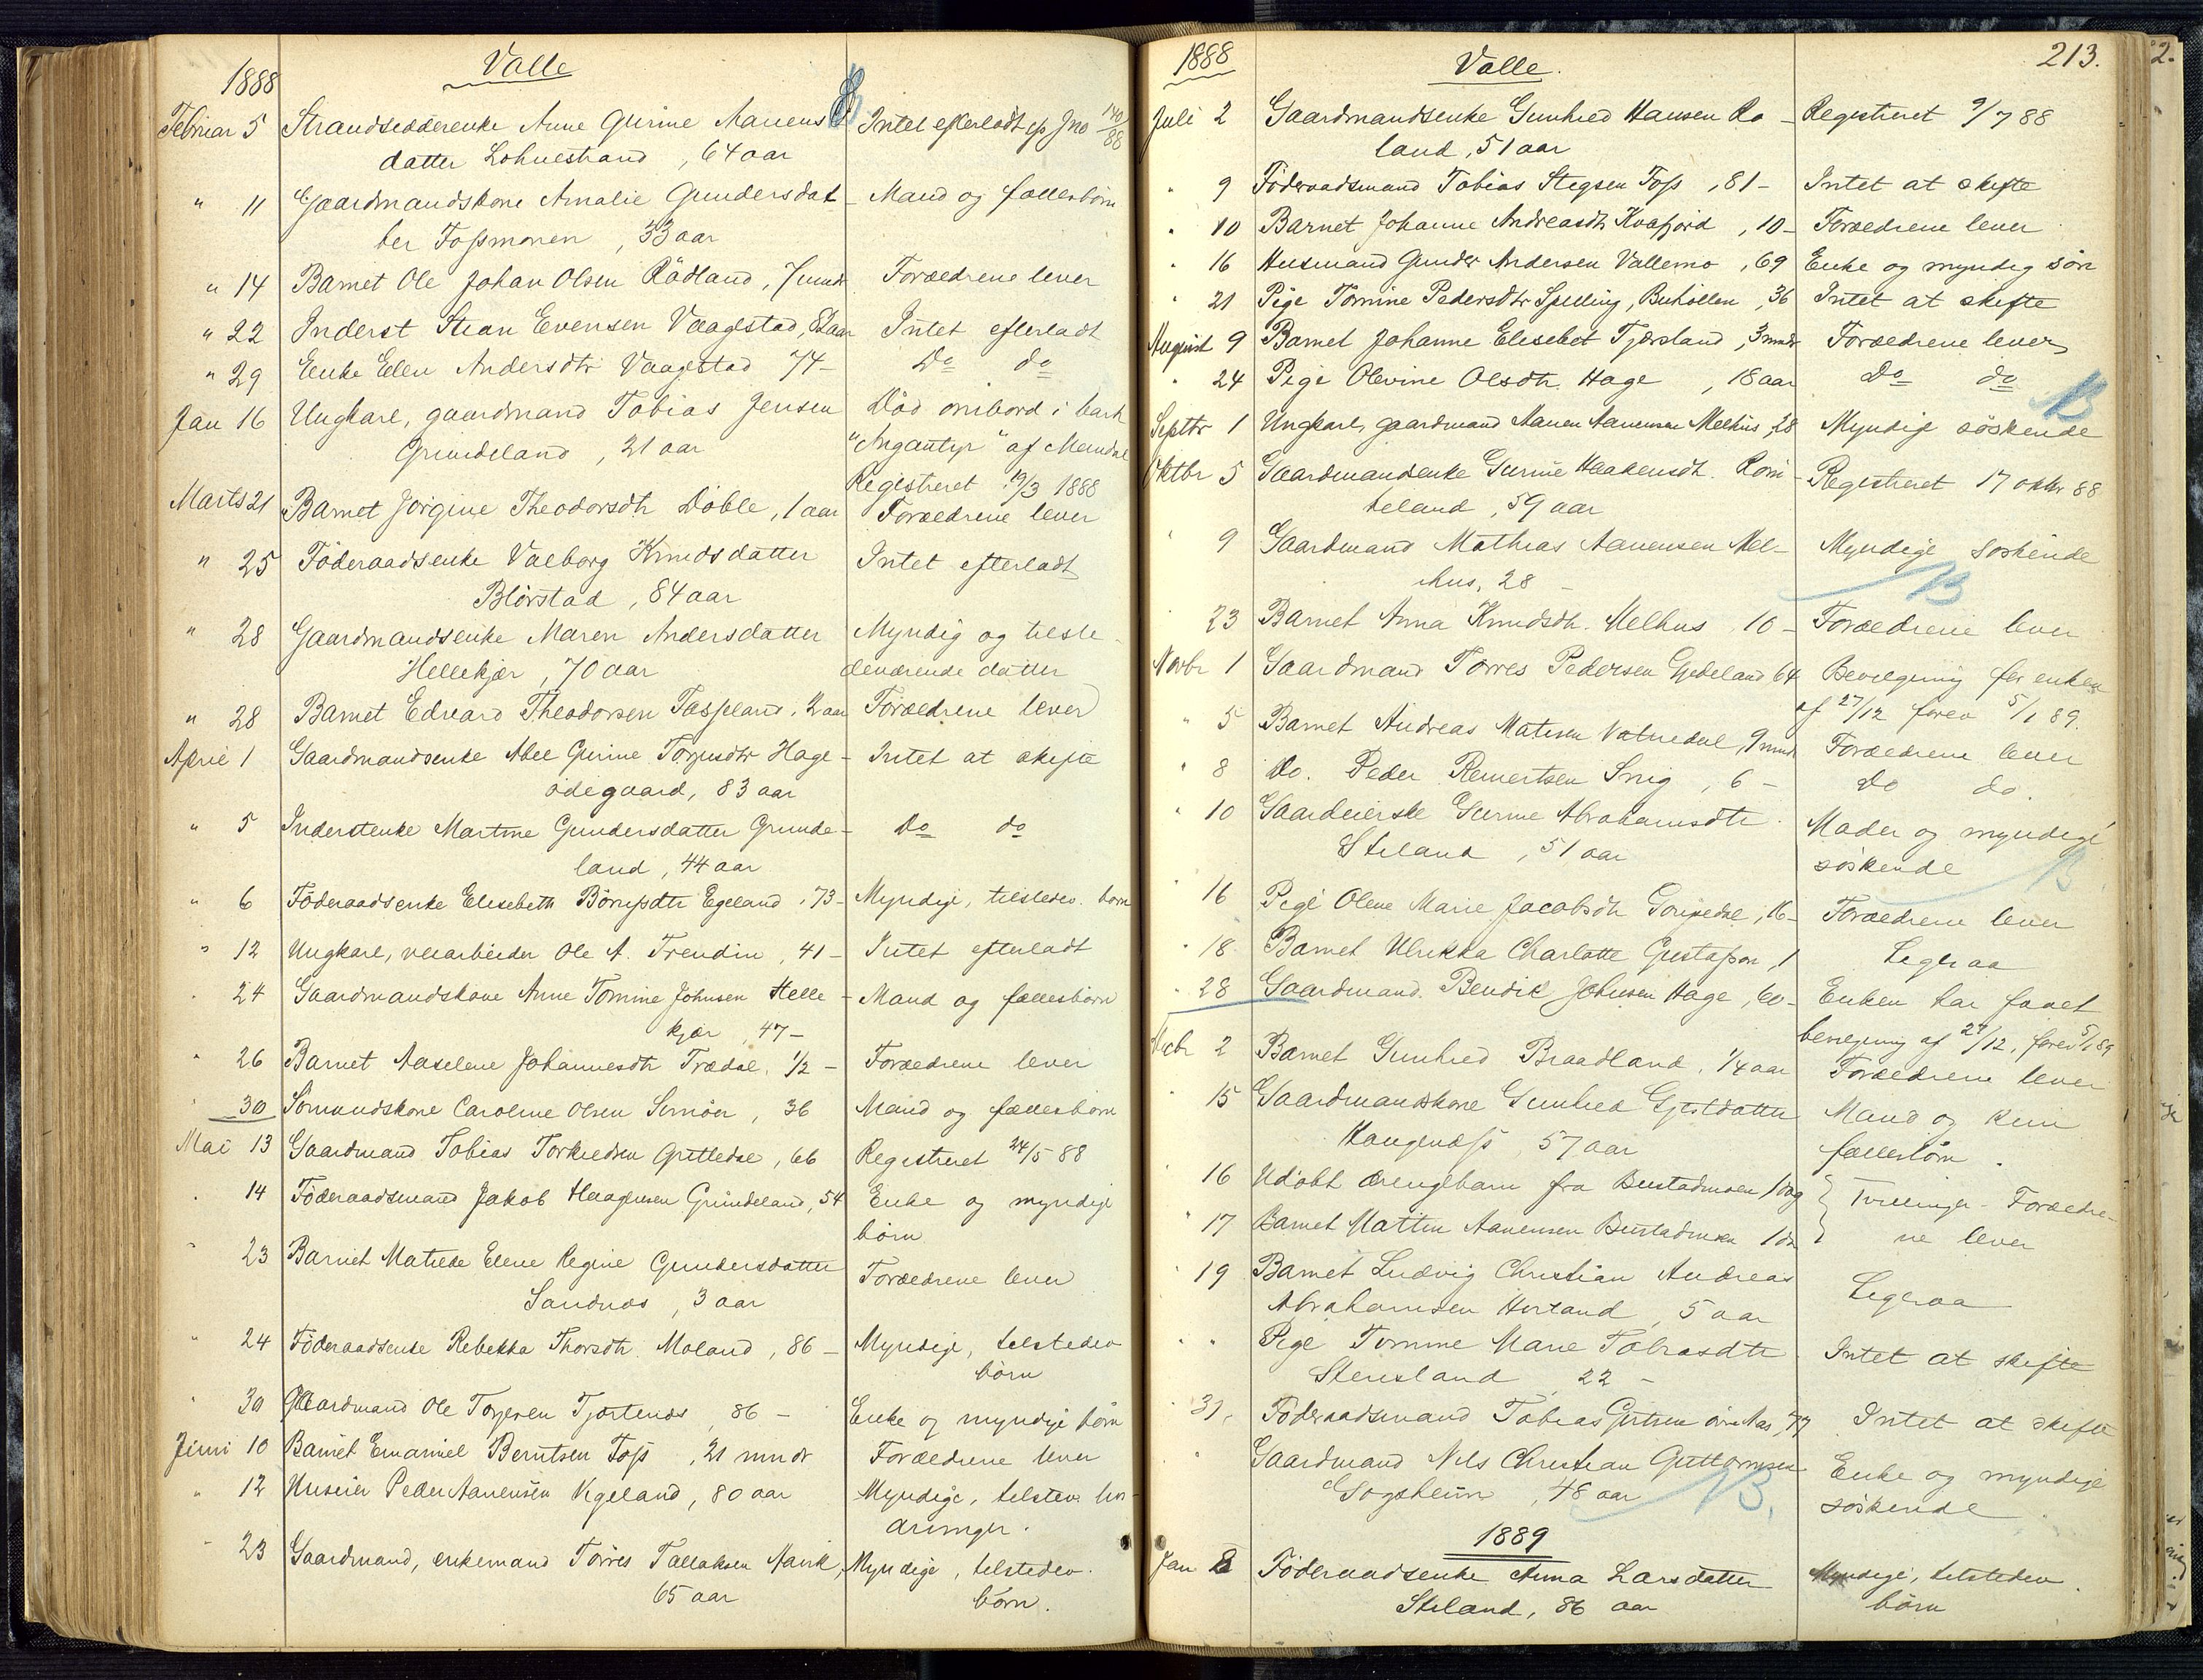 Valle
1888
Februar 5 Strandsidderenke Anne Gurine Aanens Intet efterladt cfr Jno 140/88
datter Lohnestrand, 64 aar
" 11 Gaardmandskone Amalie Gundersdat- Mand og fællesbörn
ter Fossmonen, 33 aar
" 14 Barnet Ole Johan Olsen Rödland, 7 mndr Forældrene lever
" 22 Inderst Stian Evensen Vaagestad, 82 aar Intet efterladt
" 29 Enke Ellen Andersdtr Vaagestad 74- Do do
Jan 16 Ungkarl, gaardmand Tobias Jensen Död ombord i bark
Grundeland, 21 aar "Angantyr" af Mandal
Registreret 19/3 1888
Marts 21 Barnet Jörgine Theodorsdtr Döble, 1 aar Forældrene lever
" 25 Föderaadsenke Valborg Knudsdatter Intet efterladt
Blörstad, 84 aar
" 28 Gaardmandsenke Maren Andersdatter Myndig og tilste-
Hellekjær, 70 aar deværende datter
" 28 Barnet Edvard Theodorsen Tassland, 2 aar Forældrene lever
April 1 Gaardmandsenke Abel Gurine Torjusdtr Hage- Intet at skifte
ödegaard, 83 aar
" 5 Inderstenke Martine Gundersdatter Grunde- Do do
land, 44 aar
" 6 Föderaadsenke Elisebeth Börrisdtr Egeland, 73- Myndige, tilstedev. börn
" 12 Ungkarl, veiarbeider Ole A. Trendin, 41- Intet efterladt
" 24 Gaardmandskone Anne Tomine Johnsen Helle- Mand og fællesbörn
kjær, 47-
" 26 Barnet Aaselene Johannesdtr Trædal, 1/2- Forældrene lever
" 30 Sömandskone Caroline Olsen Simöen, 36 Mand og fællesbörn
Mai 13 Gaardmand Tobias Torkildsen Gritledal, 66 Registreret 24/5 88
" 14 Föderaadsmand Jakob Haagensen Grundeland, 54 Enke og myndige
börn
" 23 Barnet Matilde Elene Regine Gundersdatter Forældrene lever
Sandnæs, 3 aar
" 24 Föderaadsenke Rebekka Thorsdtr Moland, 86- Myndige, tilstedev
börn
" 30 Gaardmand Ole Torjesen Tjörtenæs, 86- Enke og myndige börn
Juni 10 Barnet Emanuel Berntsen Foss, 21 mndr Forældrene lever
" 12 Huseier Peder Aanensen Vigeland, 80 aar Myndige, tilstev. liv-
arvinger.
" 23 Gaardmand, enkemand Torres Tallaksen Aavik, Myndige, tilstedev.
65 aar börn.
1888 Valle. 213.
Juli 2 Gaardmandsenke Gunhild Hansen Ro- Registreret 9/7 88
land, 51 aar
" 9 Föderaadsmand Tobias Stegsen Foss, 81- Intet at skifte
" 10 Barnet Johanne Andreasdtr Kvafjord, 10- Forældrene lever
" 16 Husmand Gunder Andersen Vallemo, 69 Enke og myndig sön
" 21 Pige Tomine Pedersdtr Spilling, Buhöllen, 36 Intet at skifte
August 9 Barnet Johanne Elisebet Tjærsland, 3 mndr Forældrene lever
" 24 Pige Olevine Olsdtr. Hage, 18 aar Do do
Septbr 1 Ungkarl, gaardmand Aanen Aanensen Melhus, 28 Myndige söskende B
Oktbr 5 Gaardmandsenke Gurine Haakensdtr. Rom- Registreret 17 oktbr 88
seland, 59 aar
" 9 Gaardmand Mathias Aanensen Mel- Myndige söskende
hus, 28 - B
23 Barnet Anna Knudsdtr. Melhus 10- Forældrene lever
Novbr 1 Gaardmand Torres Pedersen Gjedeland 64 Bevilgning for enken
af 27/12 forev 5/1 89.
" 5 Barnet Andreas Matisen Vatnedal, 9 mndr Forældrene lever
" 8 Do. Peder Reinertsen Snig, 6- Do do.
" 10 Gaardeierske Gurine Abrahamsdtr. Moder og myndige
Stiland, 51 aar söskende B.
" 16 Pige Olene Marie Jacobsdtr , 16- Forældrene lever
" 18 Barnet Ulrikka Charlotte Gustafson, 1 Ligesaa
" 28 Gaardmand Bendik Johnsen Hage, 60- Enken har faaet
bevilgning af 27/12, forev 5/1 89
Decbr 2 Barnet Gunhild Braadland, 1/4 aar Forældrene lever
" 15 Gaardmandskone Gunhild Gjestdatter Mand og kun
Kongenæss, 57 aar fællesbörn.
" 16 Udöbt drengebarn fra Bustadmoen 1 dag } Tvillinger. Forældre-
" 17 Barnet Martin Aanensen Bustadmoen 1 do } ne lever
" 19 Barnet Ludvig Christian Andreas Ligesaa
Abrahamsen Hörland, 5 aar
" " Pige Tomine Marie Tobiasdtr Intet at skifte
Stensland, 22 -
" 31, Föderaadsmand Tobias Gutisen övre Aas, 77 Intet at skifte
" Gaardmand Nils Christian Guttormsen Enke og myndige
Sögsheim, 48 aar B. söskende
1889
Jan 8 Föderaadsenke Anna Larsdatter Myndige, tilstedev.
Stiland, 86 aar börn